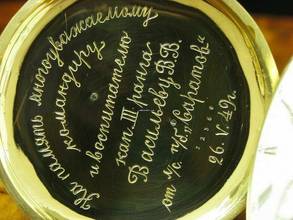 На память многоуважаемому
командиру
и воспитателю
кап. III ранга
Васильеву В.В.
от л/с. п/б. „Саратов“
26.V.49г.